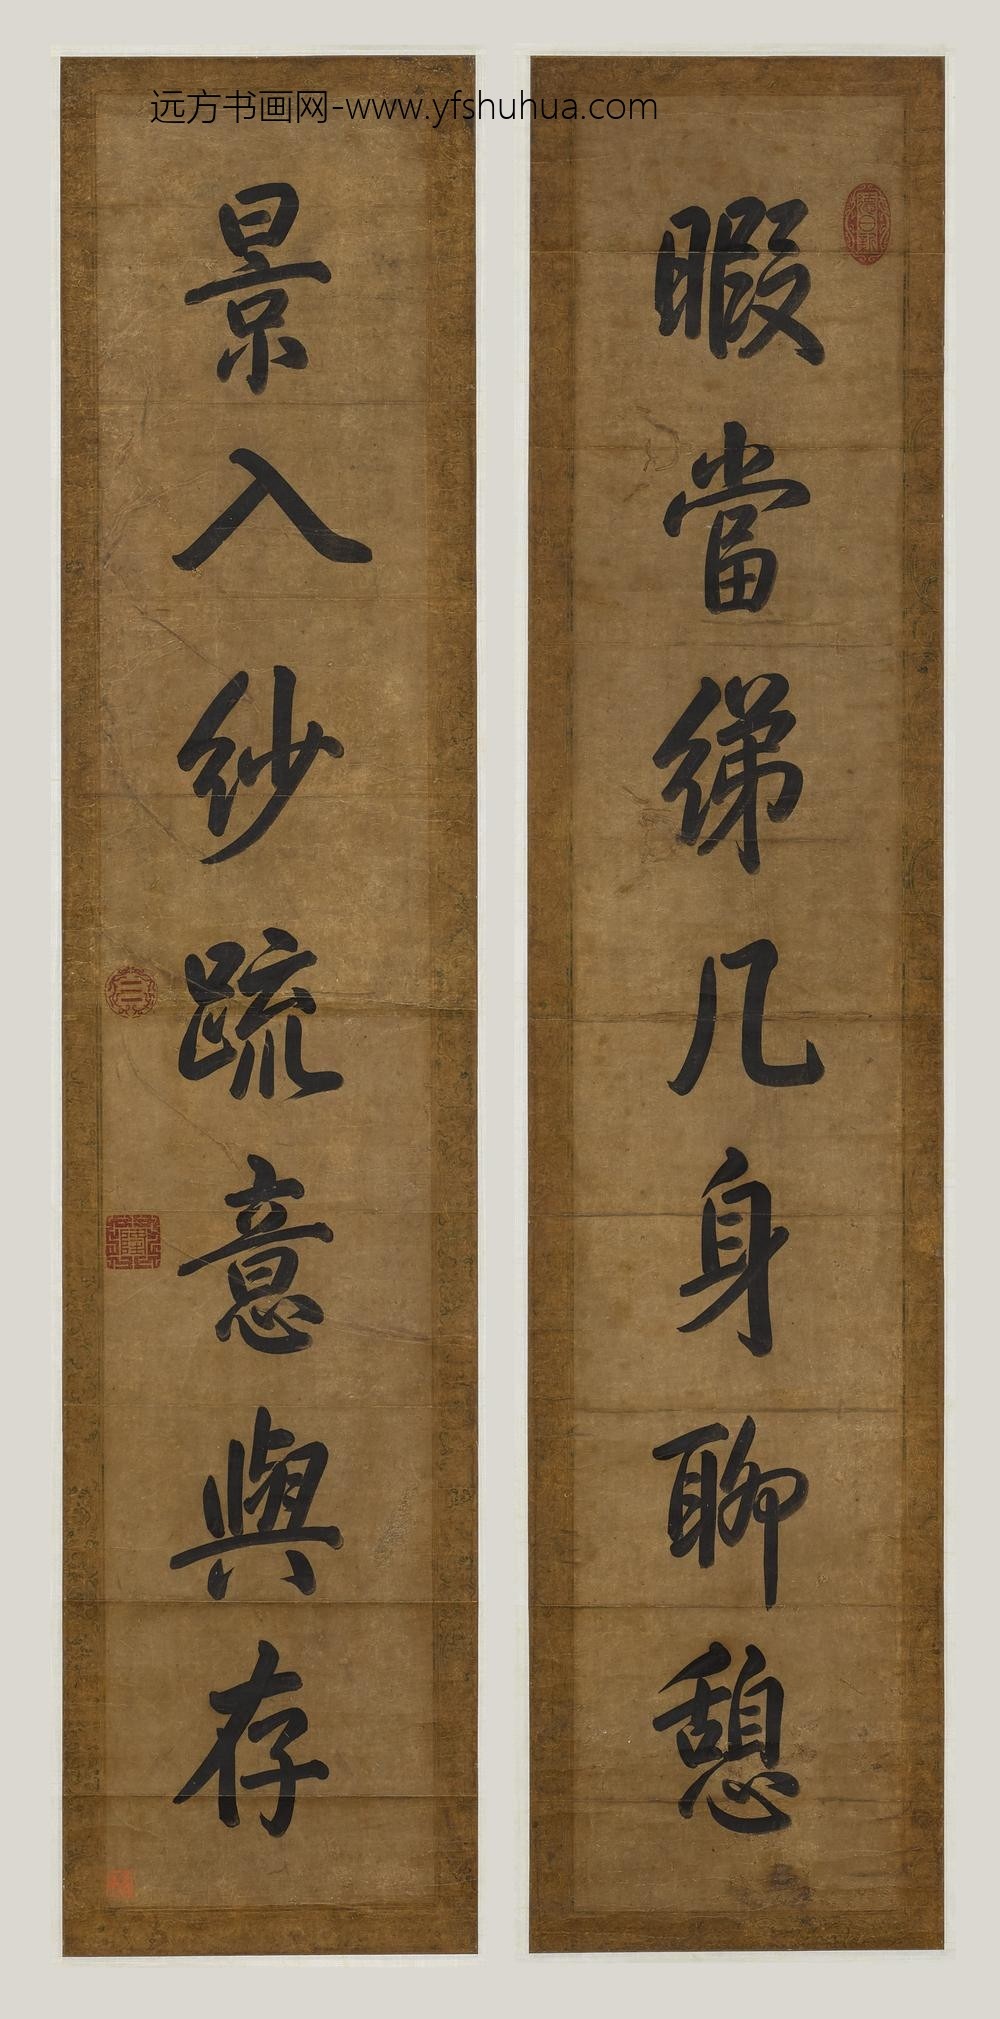 远方书画网-www.yfshuhua.com
暇當綈几身聊憩
景入紗疏意與存
三
隆